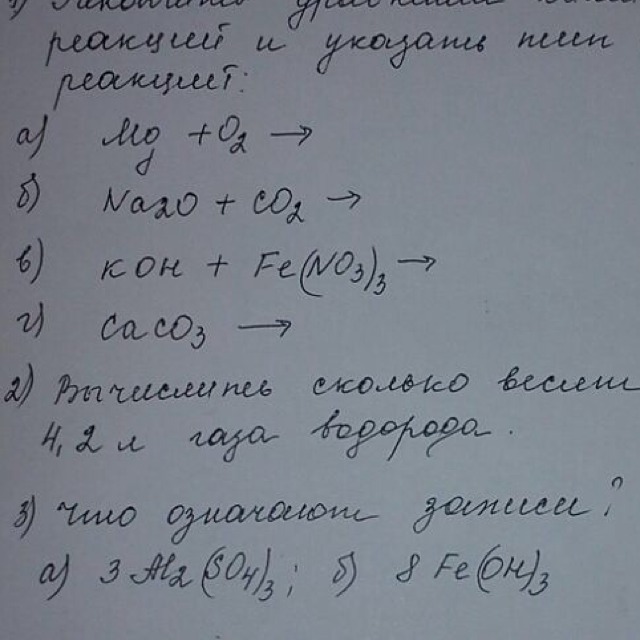 1) Закончить уравнения
реакций и указать тип
реакций:
а) Mg + O2 →
б) Na2O + CO2 →
в) KOH + Fe(NO3)3 →
г) CaCO3 →
2) Вычислить сколько весит
4,2 л газа водорода.
3) Что означают записи?
а) 3 Al2(SO4)3; б) 8 Fe(OH)3